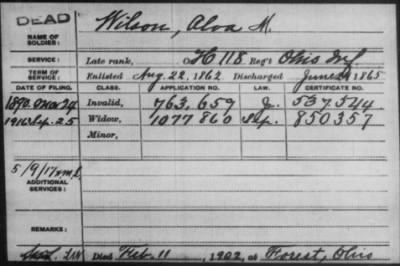 DEAD
Wilson, Alva M.
NAME OF SOLDIER:
SERVICE: Late rank, Co H 118 Reg't Ohio Inf
TERM OF SERVICE: Enlisted Aug. 22, 1862 Discharged June 24 1865
DATE OF FILING. CLASS. APPLICATION NO. LAW. CERTIFICATE NO.
1890 Invalid, 763.659 537.544
1916 Sep. 25 Widow, 1077 860 850357
Minor,
5/9/17
ADDITIONAL SERVICES:
REMARKS:
Died Feb. 11, 1902, at Forest, Ohio